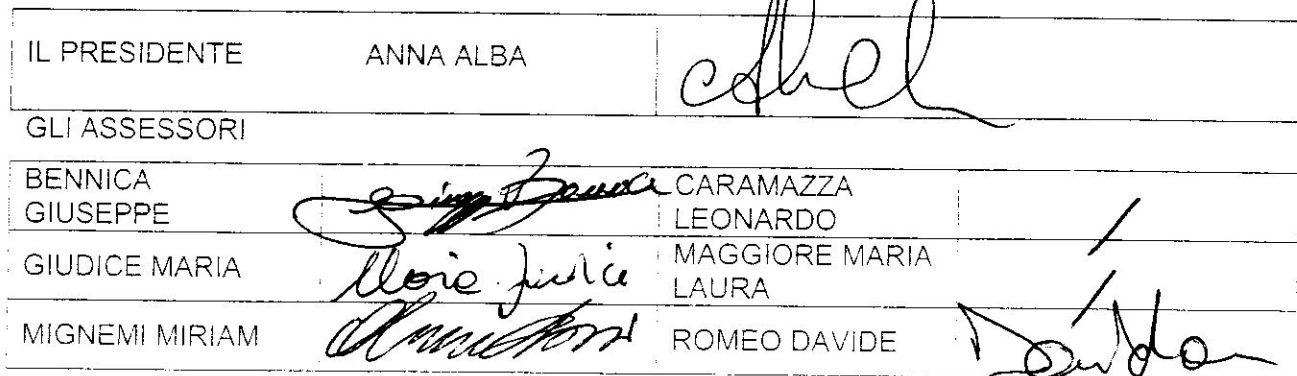 IL PRESIDENTE ANNA ALBA
GLI ASSESSORI
BENNICA GIUSEPPE CARAMAZZA LEONARDO /
GIUDICE MARIA Maria Giudice MAGGIORE MARIA LAURA /
MIGNEMI MIRIAM ROMEO DAVIDE